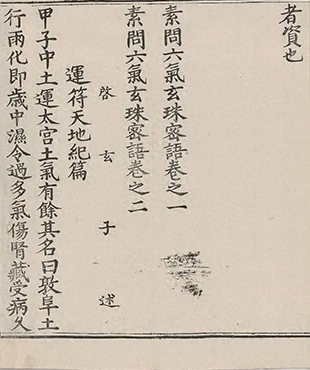 者資也
素問六氣玄珠宻語卷之一
素問六氣玄珠宻語卷之二
啓玄子述
運符天地紀篇
甲子中土運太宫土氣有餘其名曰敦阜土
行雨化即歳中濕令過多氣傷腎藏受病久